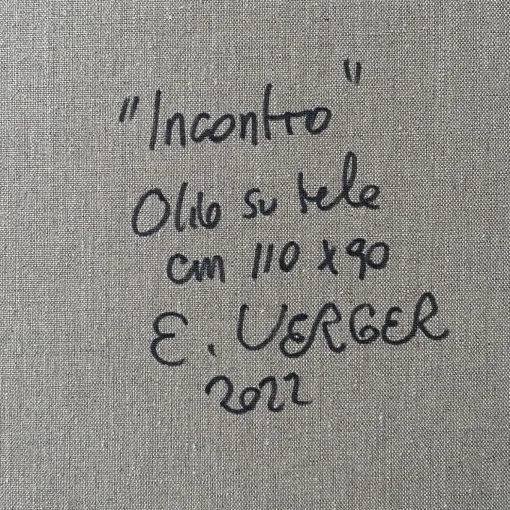 "Incontro"
Olio su tela
cm 110 x 90
E. VERGER
2022